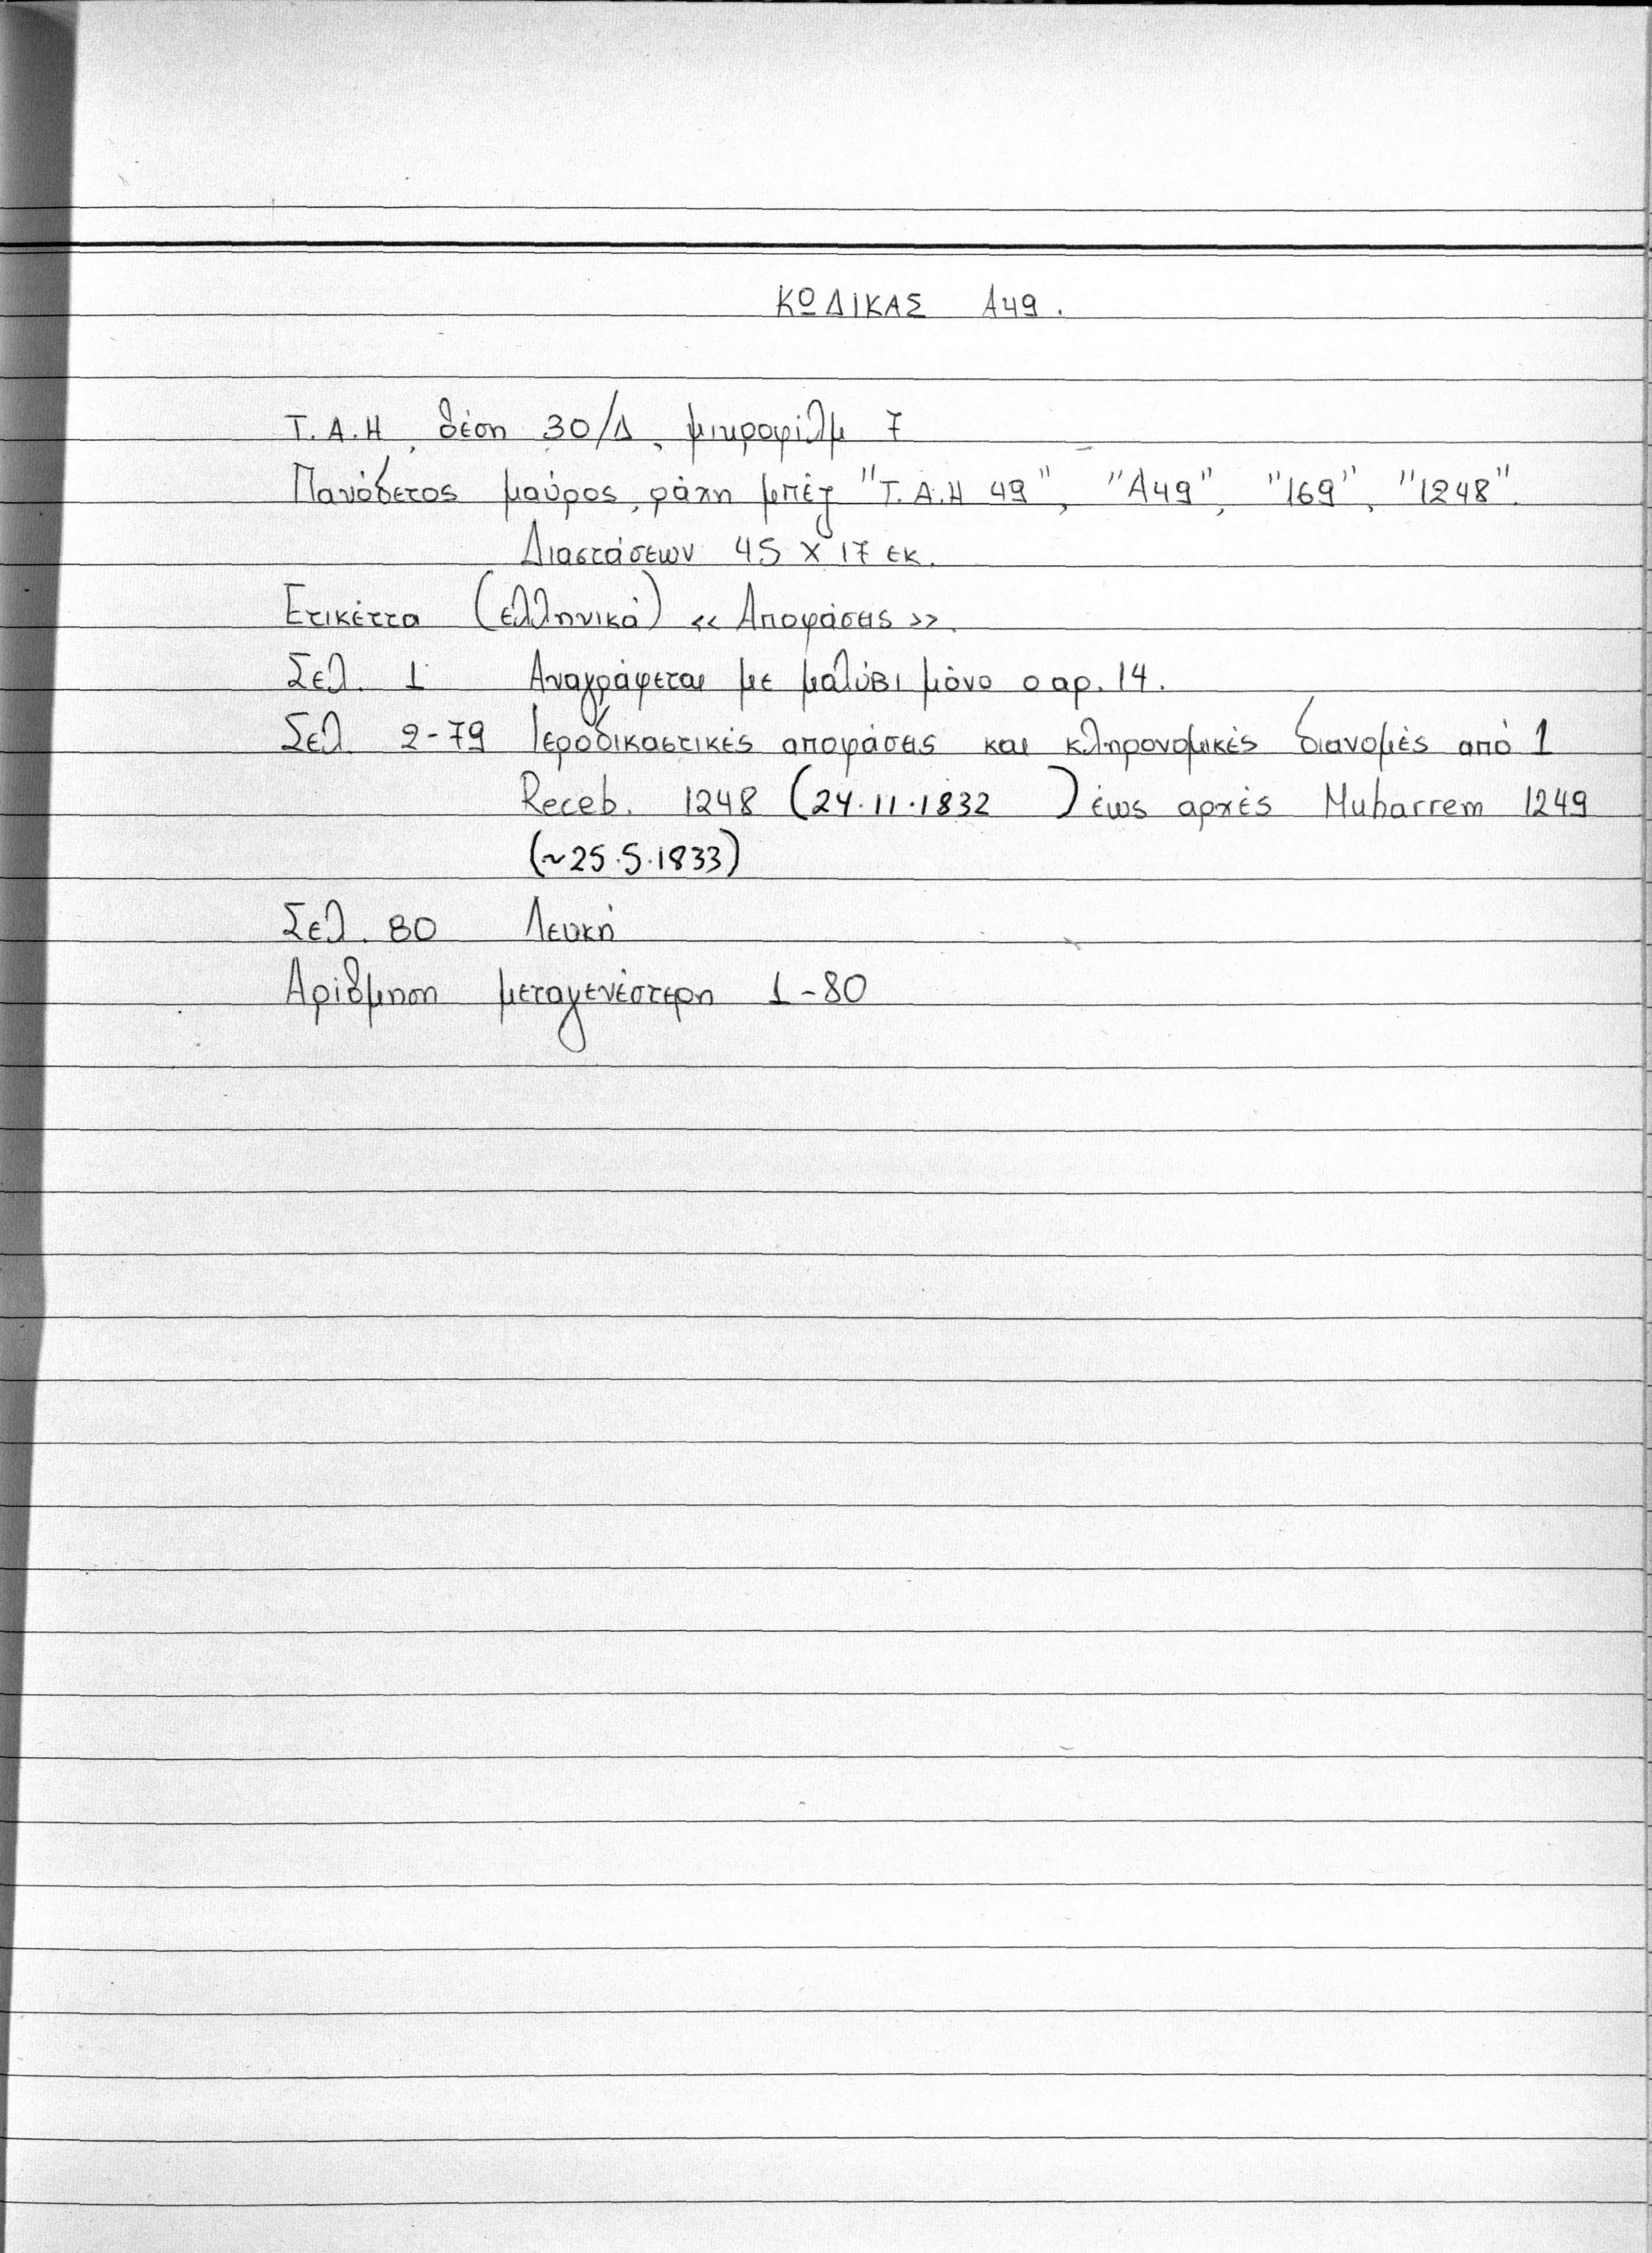 ΚΩΔΙΚΑΣ Α49.
Τ.Α.Η, θέση 30/Δ, μικροφίλμ 7
Πανόδετος μαύρος, ράχη μπέζ "Τ.Α.Η 49", "Α49", "169", "1248".
Διαστάσεων 45 Χ 17 εκ.
Ετικέττα (ελληνικά) «Αποφάσεις».
Σελ. 1 Αναγράφεται με μολύβι μόνο ο αρ. 14.
Σελ. 2-79 Ιεροδικαστικές αποφάσεις και κληρονομικές διανομές από 1
Receb. 1248 (24.11.1832 ) έως αρχές Muharrem 1249
(~25.5.1833)
Σελ. 80 Λευκή
Αρίθμηση μεταγενέστερη 1-80